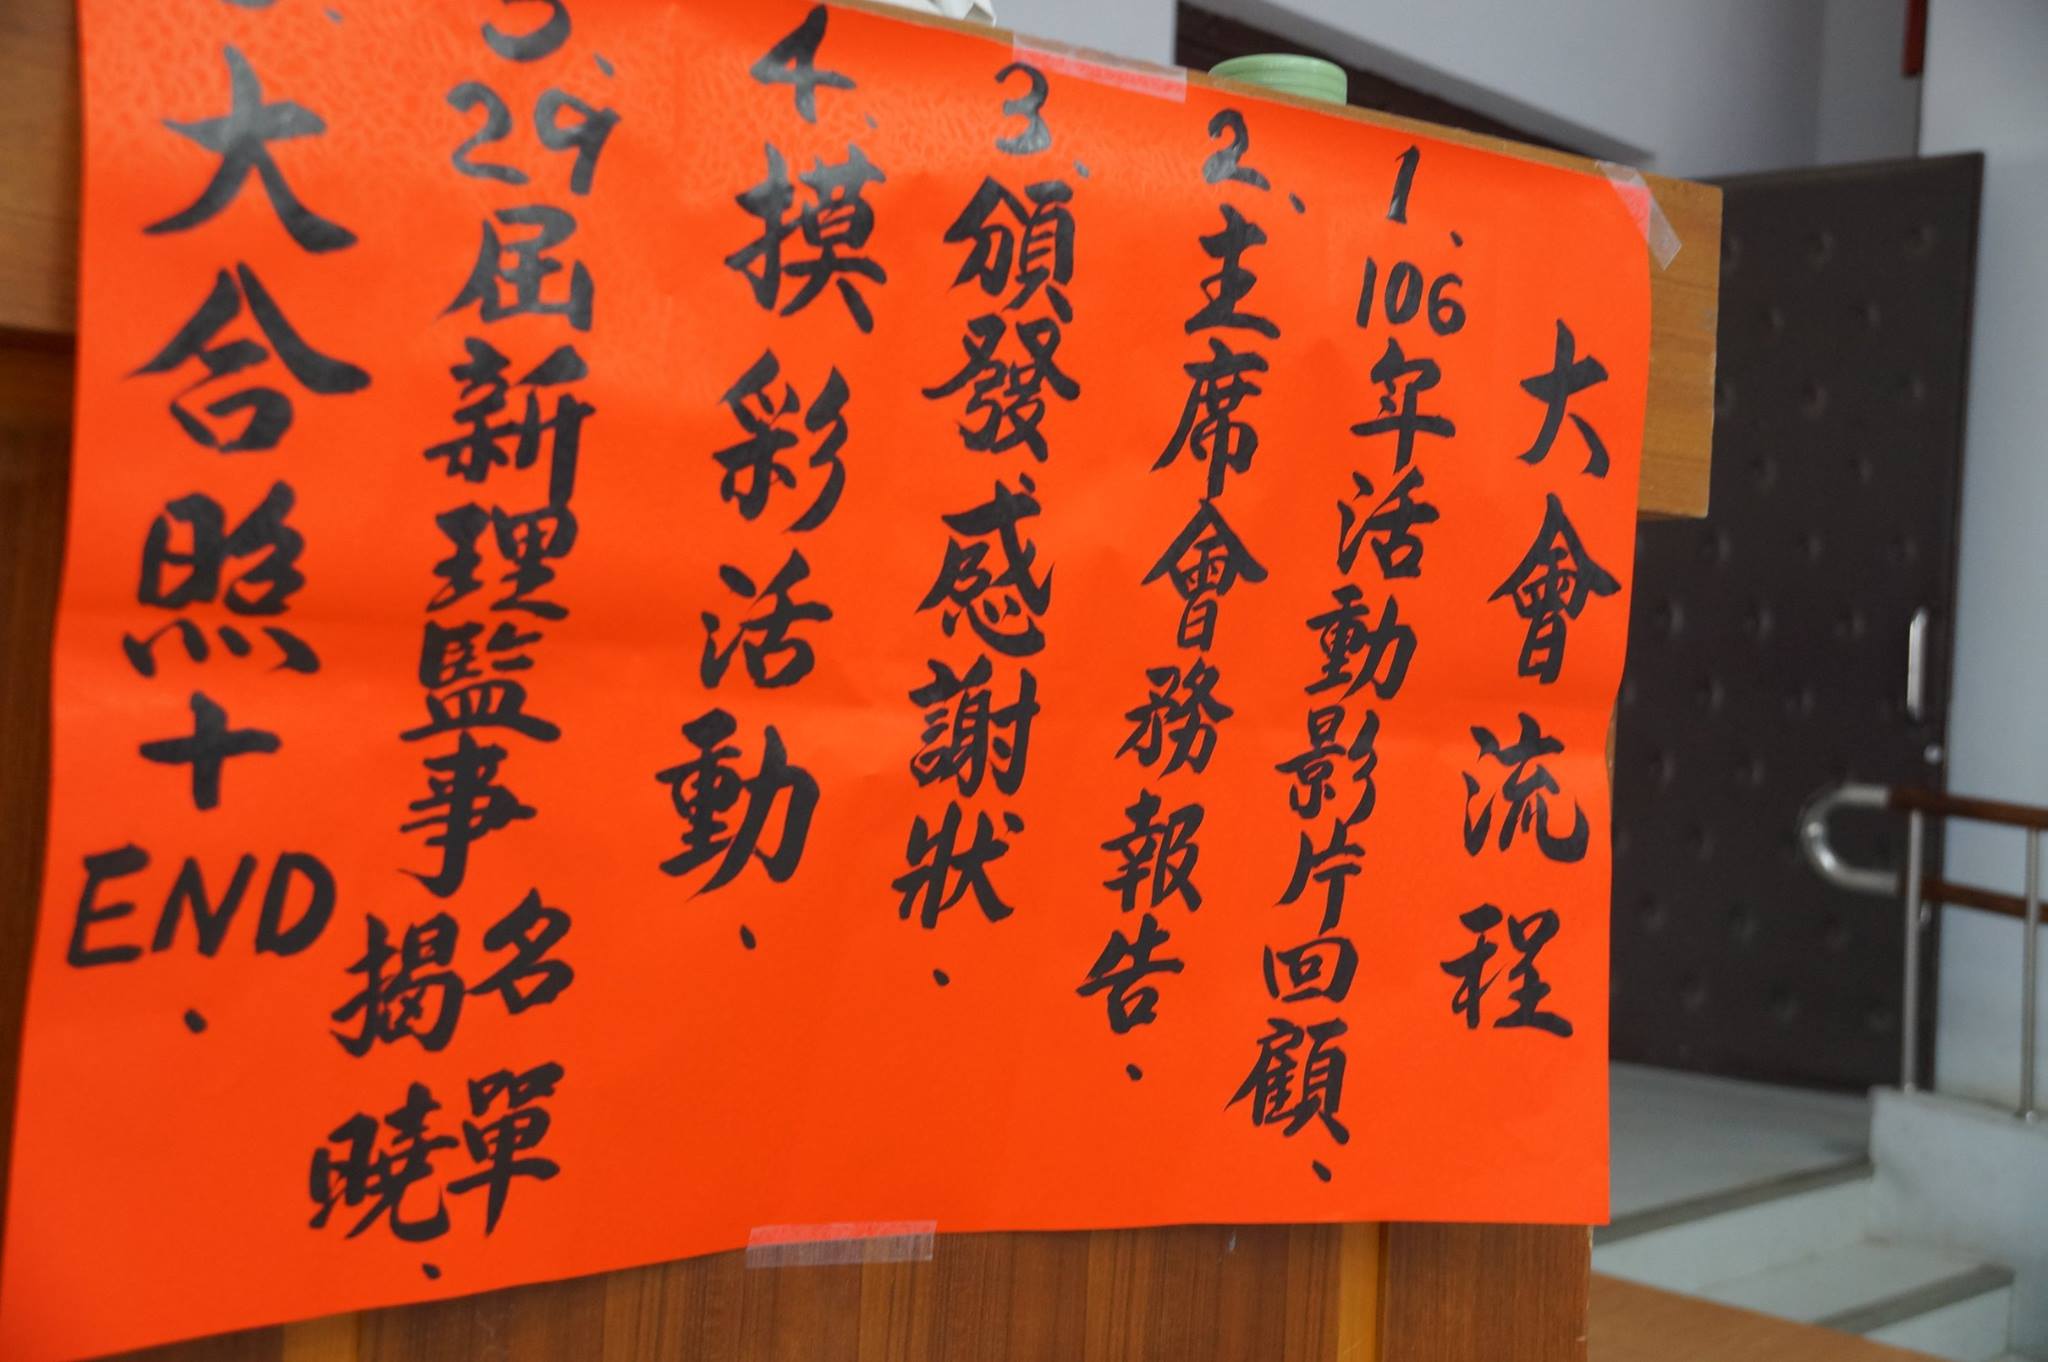 大會流程
1、106年活動影片回顧、
2、主席會務報告、
3、頒發感謝狀、
4、摸彩活動、
5、29屆新理監事名單揭曉、
大合照+END、